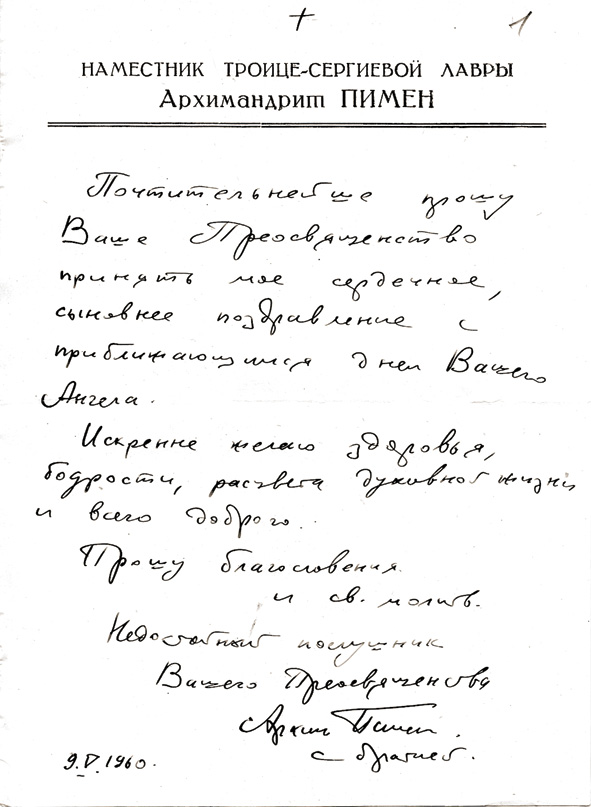 + 1
НАМЕСТНИК ТРОИЦЕ-СЕРГИЕВОЙ ЛАВРЫ
Архимандрит ПИМЕН
Почтительнейше прошу
Ваше Преосвященство
принять мое сердечное,
сыновнее поздравление с
приближающимся днем Вашего
Ангела.
Искренне желаю здоровья,
бодрости, расцвета духовной жизни
и всего доброго.
Прошу благословения
и св. молитв.
Недостойный послушник
Вашего Преосвященства
Архим Пимен
с братией.
9.V.1960.